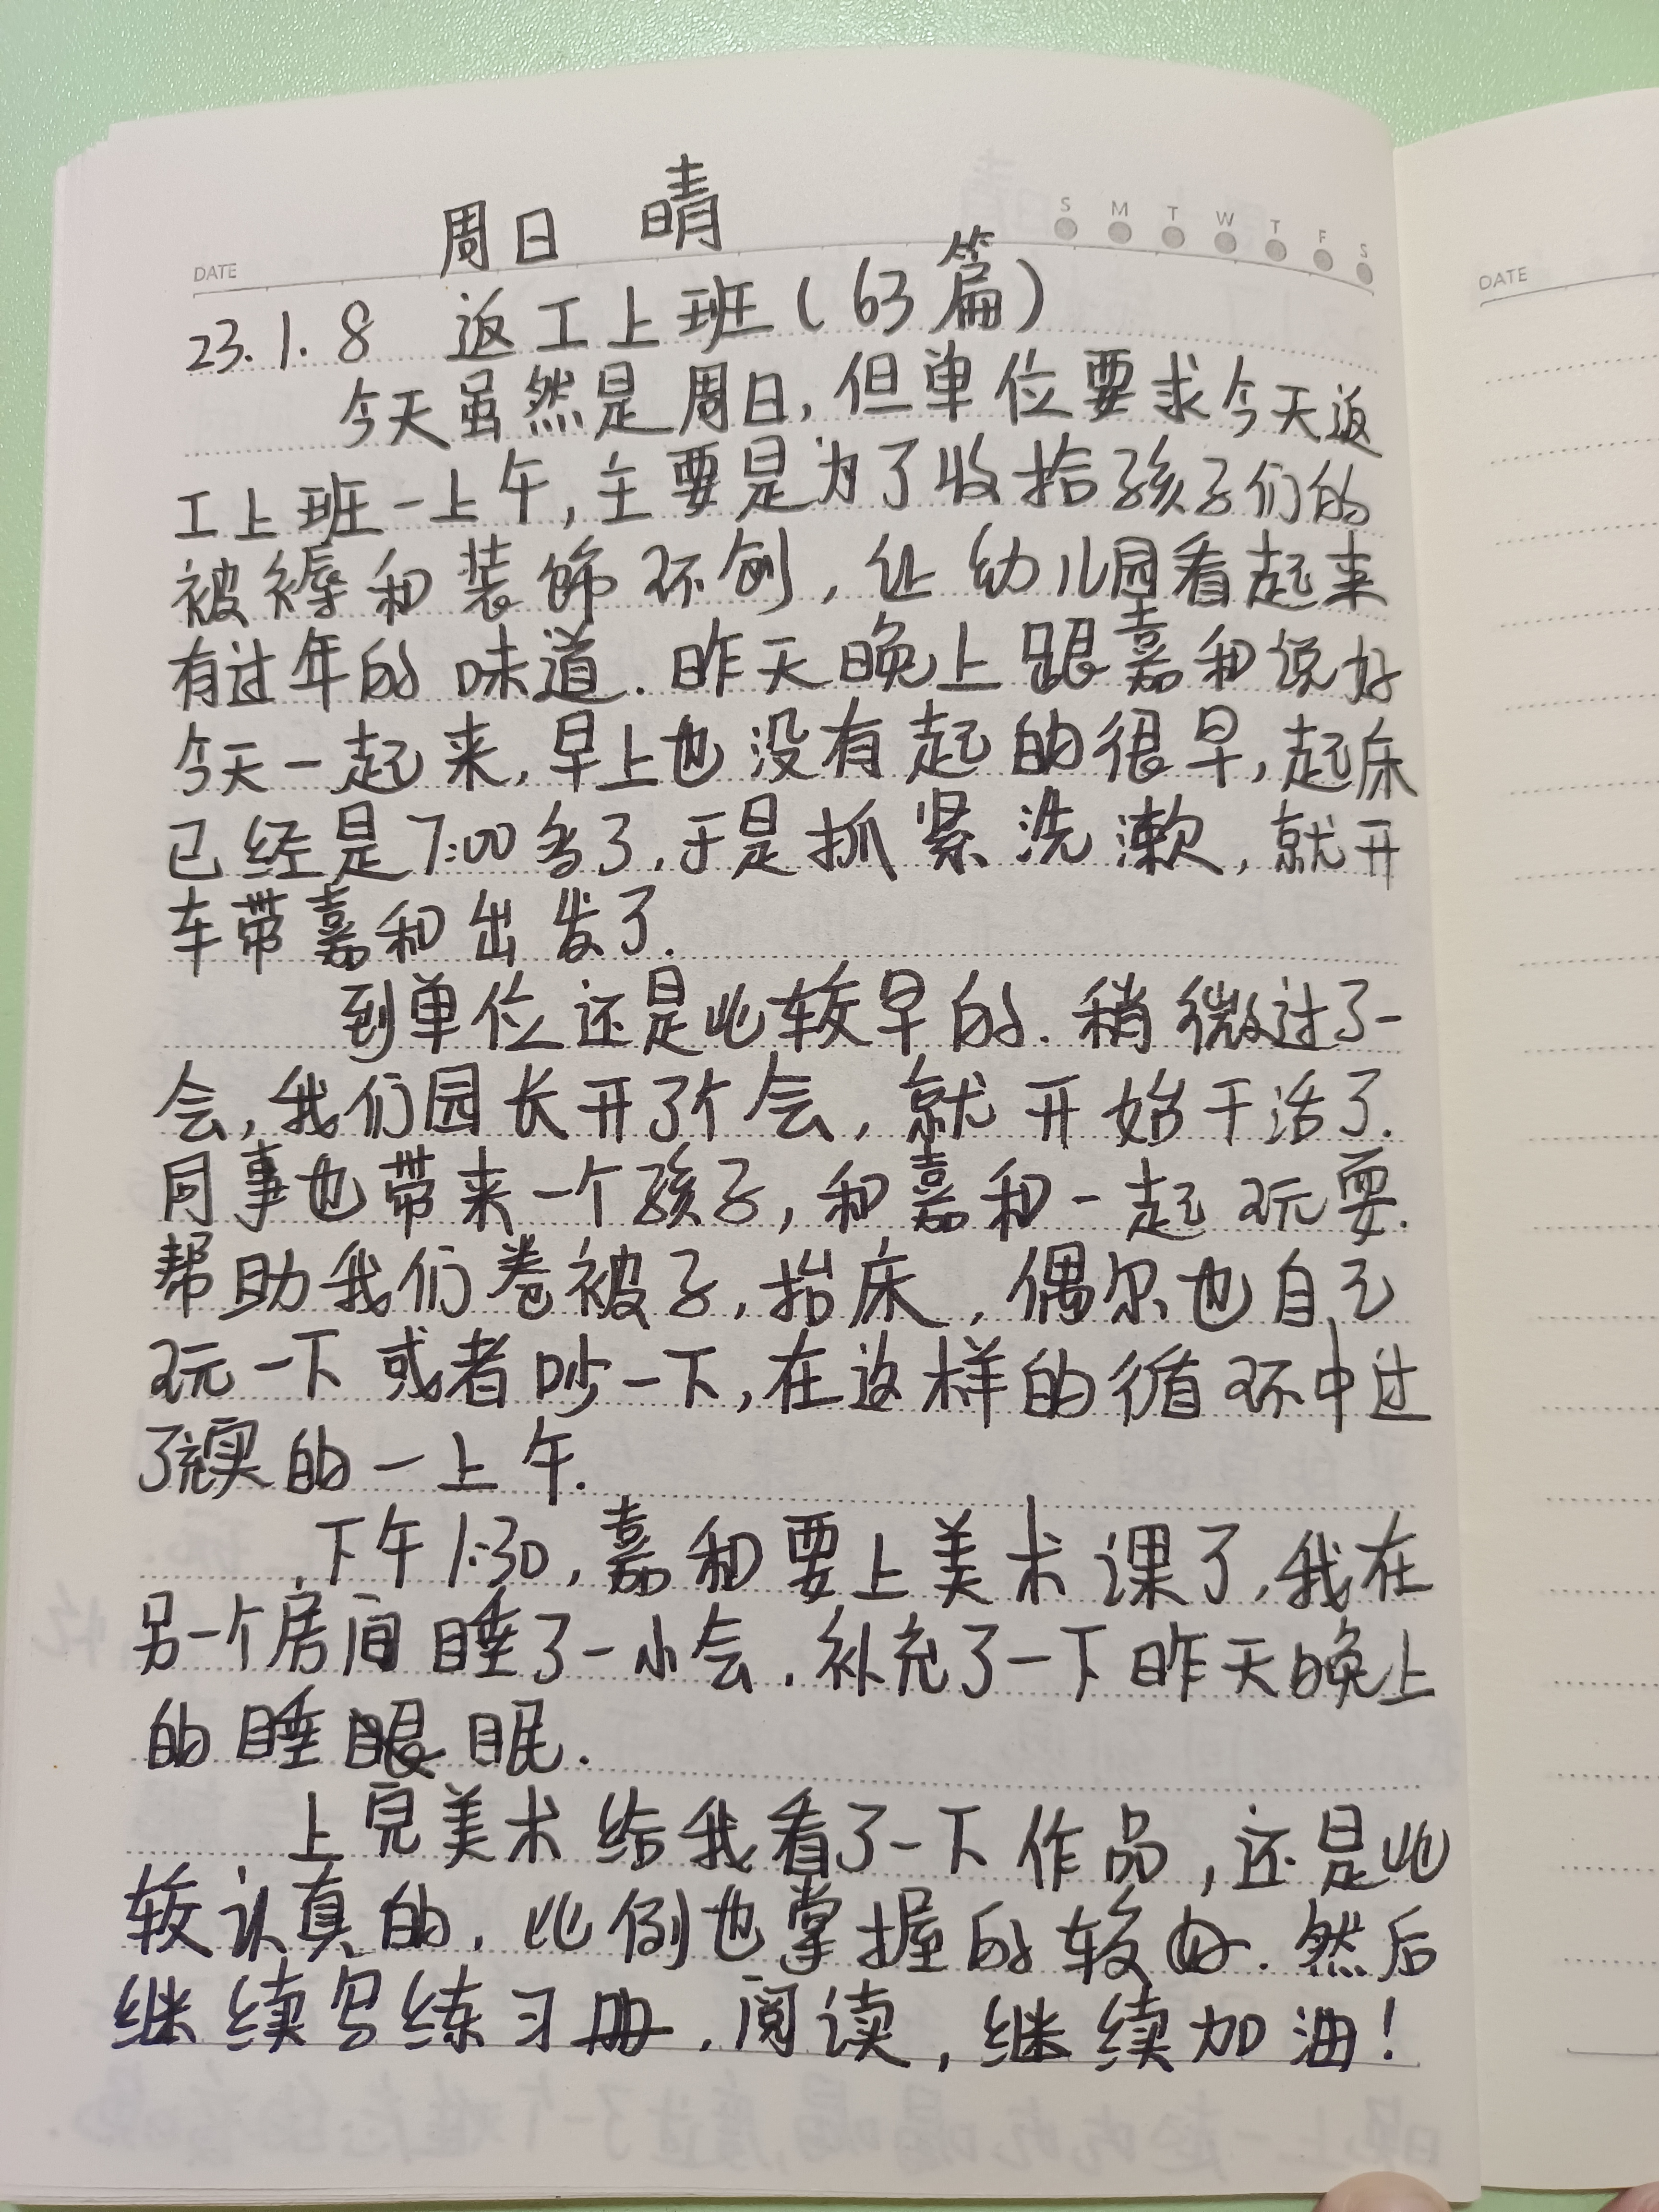 周日 晴
S M T W T F S
DATE
DATE
23.1.8 返工上班(63篇)
今天虽然是周日,但单位要求今天返
工上班一上午,主要是为了收拾孩子们的
被褥和装饰环创,让幼儿园看起来
有过年的味道.昨天晚上跟嘉和说好
今天一起来,早上也没有起的很早,起床
已经是7:00多了.于是抓紧洗漱,就开
车带嘉和出发了.
到单位还是比较早的.稍微过了一
会,我们园长开了个会,就开始干活了.
同事也带来一个孩子,和嘉和一起玩耍.
帮助我们卷被子,抬床,偶尔也自己
玩一下或者吵一下,在这样的循环中过
了充实的一上午.
下午1:30,嘉和要上美术课了,我在
另一个房间睡了一小会.补充了一下昨天晚上
的睡眠眠.
上完美术给我看了一下作品,还是比
较认真的.比例也掌握的较好.然后
继续写练习册.阅读,继续加油!